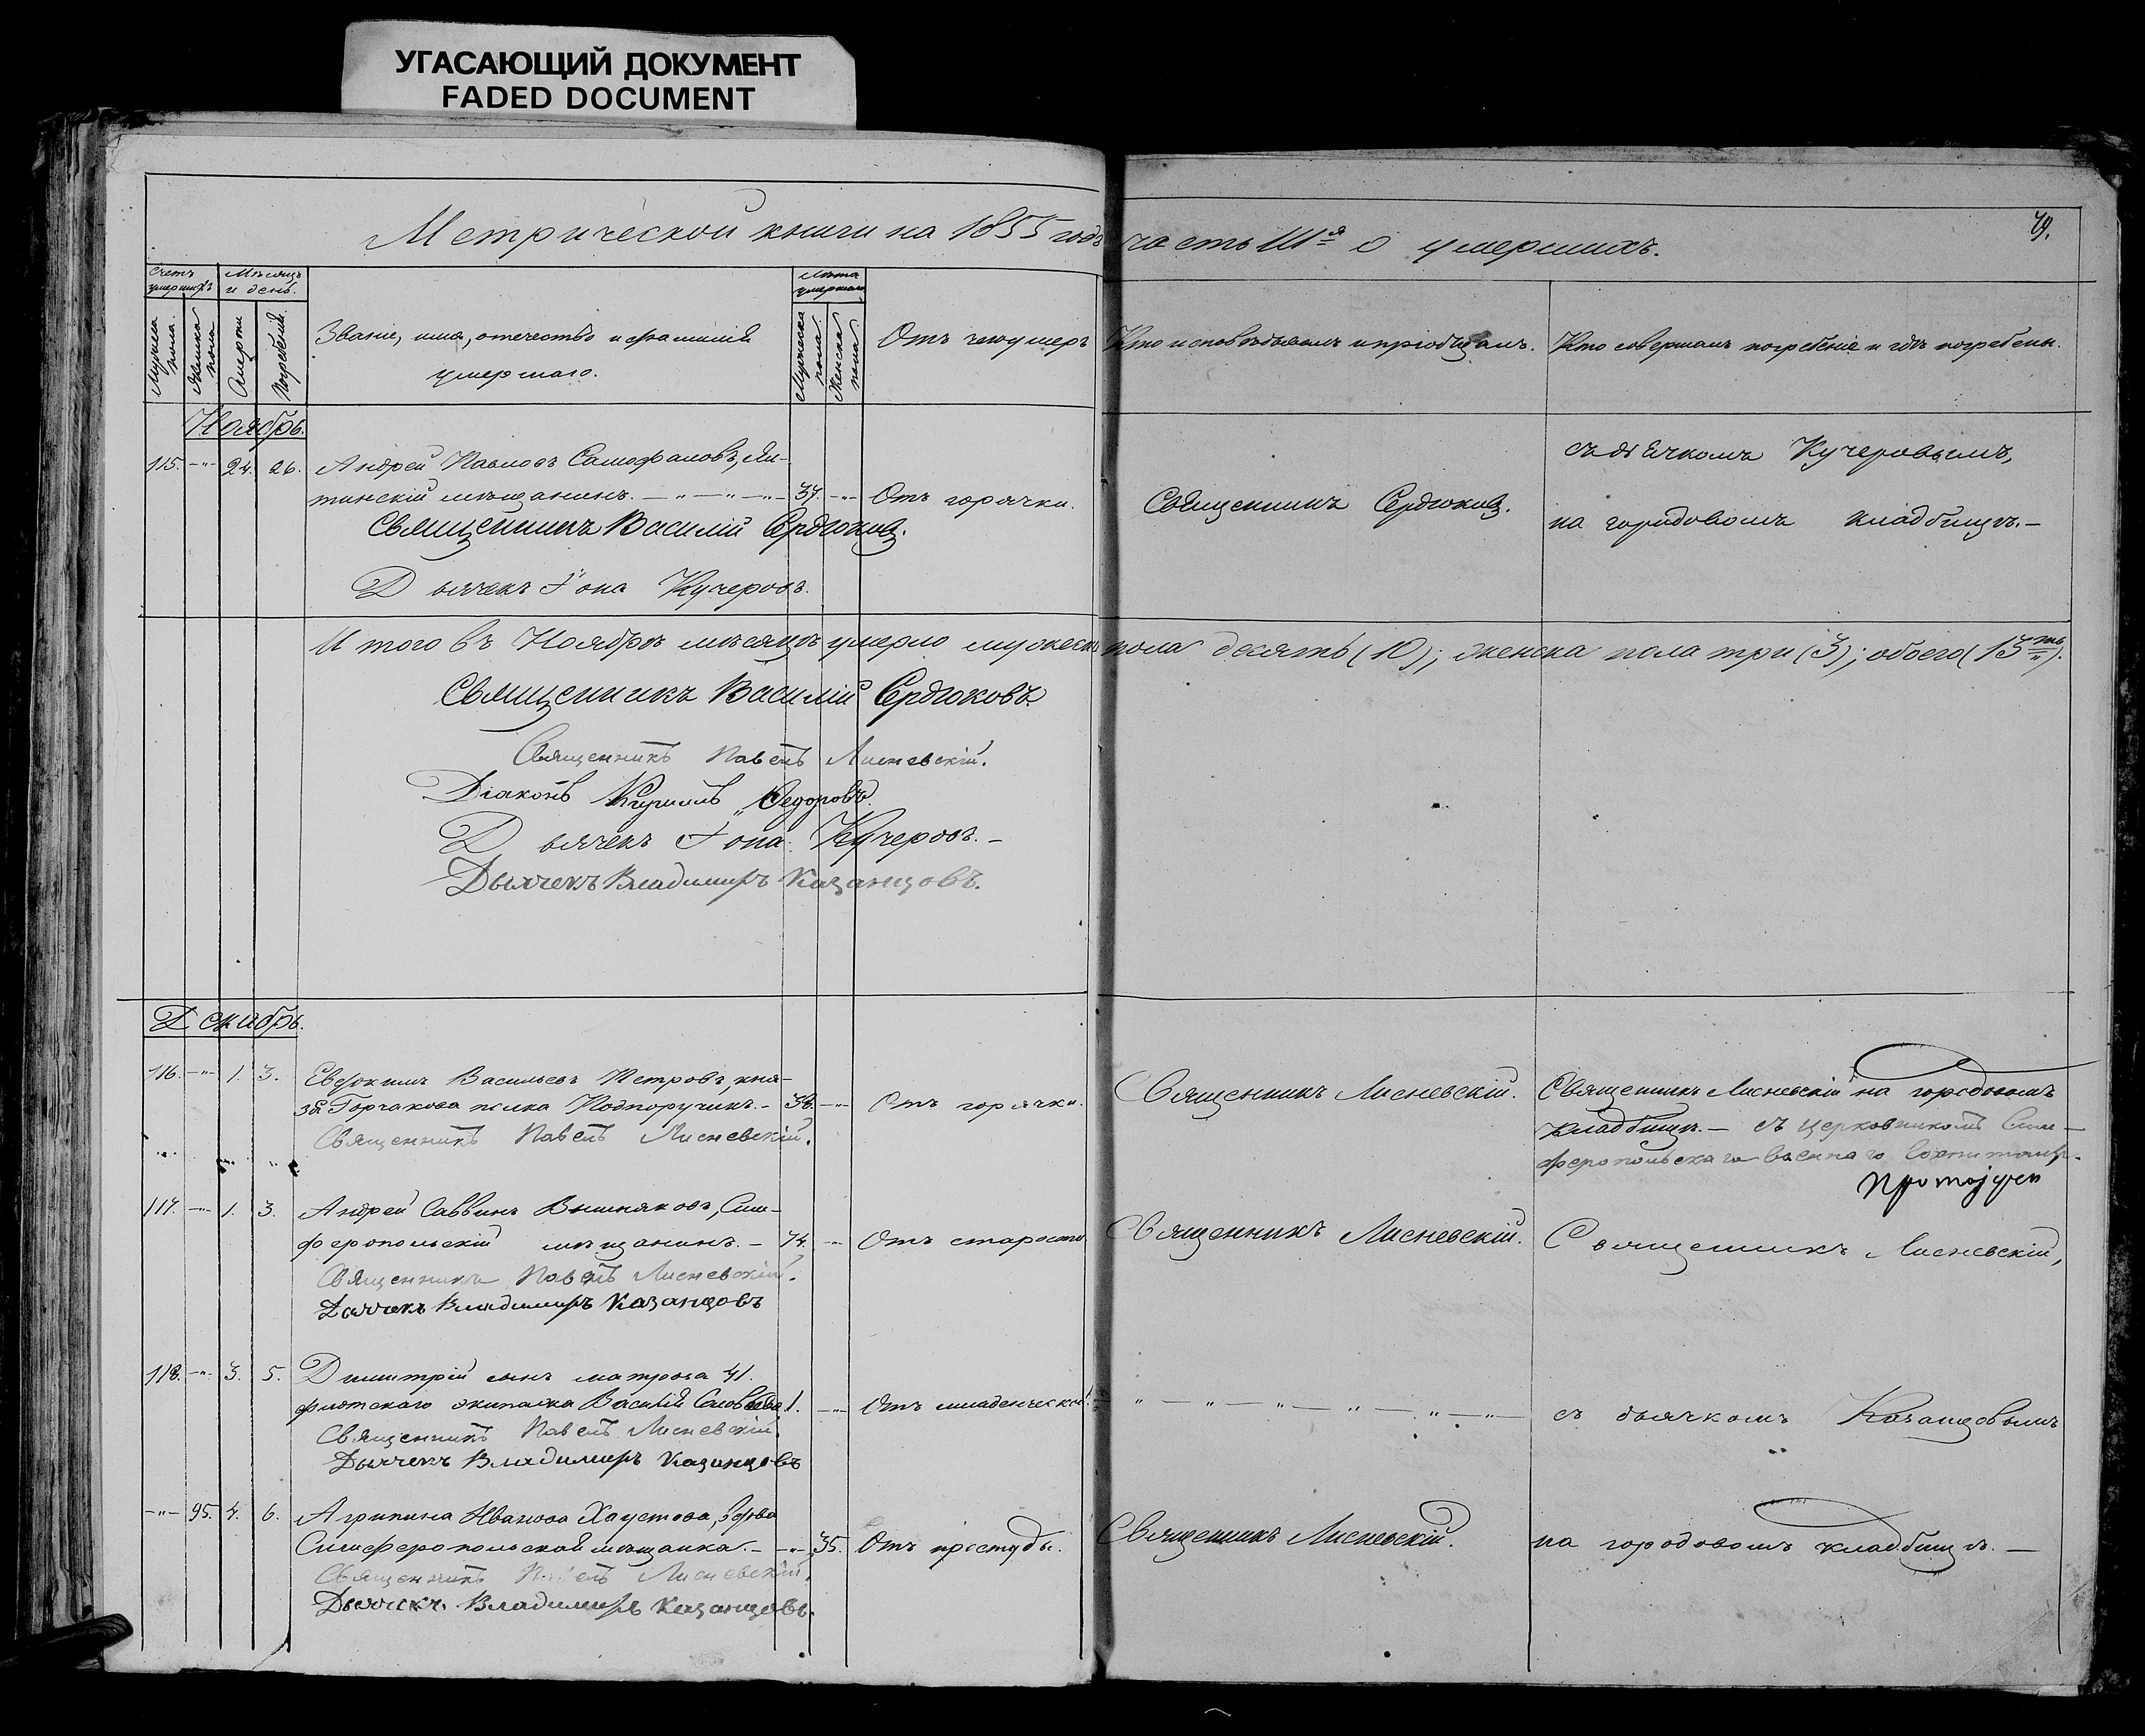 УГАСАЮЩИЙ ДОКУМЕНТ
FADED DOCUMENT
Метрической книги на 1855 годъ часть III-я о умершихъ.
79.
Счетъ умершихъ
Мѣсяцъ и день.
Лѣта умершаго
Мужеска пола.
Женска пола
Смерти
Погребенія.
Званіе, имя, отечество и фамилія
умершаго.
Мужеска пола.
Женска пола.
Отъ чего умеръ
Кто исповѣдывалъ и пріобщалъ.
Кто совершалъ погребеніе и гдѣ погребены.
Ноябрь.
115. —"— 24. 26. Андрей Павловъ Самофаловъ,
тинскій мѣщанинъ. — " — " — " — 37. —"— Отъ горячки.
Священникъ Сердюковъ.
съ дьячкомъ Кучеровымъ,
на городовомъ кладбищѣ.—
Священникъ Василій Сердюковъ.
Дьячекъ Іона Кучеровъ.
Итого въ Ноябрѣ мѣсяцѣ умерло мужеска пола десять (10); женска пола три (3); обоего (13-ть).
Священникъ Василій Сердюковъ.
Священникъ Павелъ Лисневскій.
Діаконъ Ѳедоровъ.
Дьячекъ Іона Кучеровъ.—
Дьячекъ Владимиръ Казанцовъ.
Декабрь.
116. —"— 1. 3. Евдокимъ Васильевъ Петровъ, кня-
зя Горчакова полка Подпоручикъ.— 38. —"— Отъ горячки.
Священникъ Лисневскій.
Священникъ Лисневскій на городовомъ
кладбищѣ.— съ церковникомъ Сим-
феропольскаго военнаго
Священникъ Павелъ Лисневскій.
117. —"— 1. 3. Андрей Саввинъ Вишняковъ, Сим-
феропольскій мѣщанинъ.— 74. —"— Отъ старости
Священникъ Лисневскій.
Священникъ Лисневскій,
Священникъ Павелъ Лисневскій.
Дьячекъ Владимиръ Казанцовъ
118. —"— 3. 5. Димитрій сынъ матроса 41.
флотскаго экипажа Василій 1. —"— Отъ младенческой
— " — " — " — " — " — " —
съ дьячкомъ Казанцовымъ
Священникъ Павелъ Лисневскій.
Дьячекъ Владимиръ Казанцовъ
—"— 95. 4. 6. Агрипина Иванова Хаустова, вдова
Симферопольская мѣщанка.— —"— 35. Отъ простуды.
Священникъ Лисневскій.
на городовомъ кладбищѣ.—
Священникъ Павелъ Лисневскій.
Дьячекъ Владимиръ Казанцовъ.